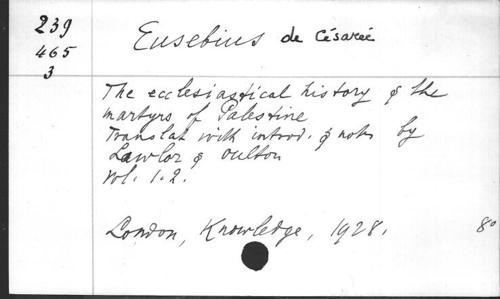 239
465
3
Eusebius de Césarée
The ecclesiastical history & the
martyrs of Palestine
Translat with introd. & notes by
Lawlor & Oulton
vol. 1.2.
London, Knowledge, 1928. 8°